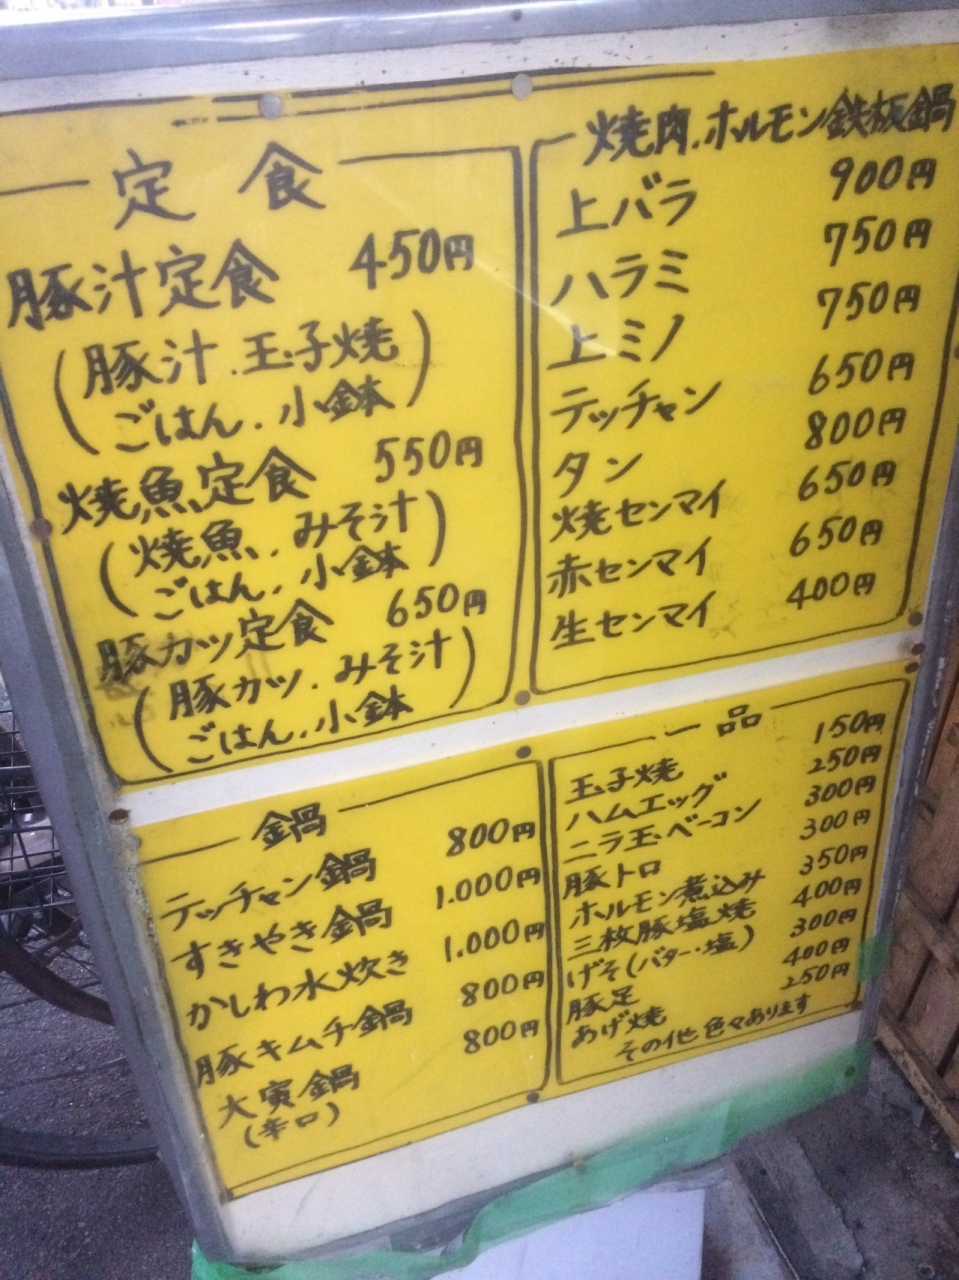 定食
豚汁定食 450円
(豚汁.玉子焼
ごはん.小鉢)
焼魚定食 550円
(焼魚.みそ汁
ごはん.小鉢)
豚カツ定食 650円
(豚カツ.みそ汁
ごはん.小鉢)
焼肉.ホルモン鉄板鍋
上バラ 900円
ハラミ 750円
上ミノ 750円
テッチャン 650円
タン 800円
焼センマイ 650円
赤センマイ 650円
生センマイ 400円
鍋
テッチャン鍋 800円
すきやき鍋 1.000円
かしわ水炊き 1.000円
豚キムチ鍋 800円
大寅鍋 800円
(辛口)
一品
玉子焼 150円
ハムエッグ 250円
ニラ玉ベーコン 300円
豚トロ 300円
ホルモン煮込み 350円
三枚豚塩焼 400円
げそ(バター・塩) 300円
豚足 400円
あげ焼 250円
その他色々あります